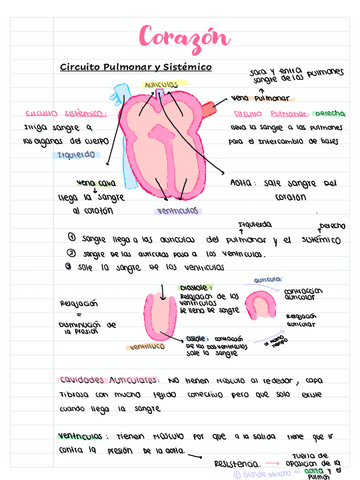 Corazón
Circuito Pulmonar y Sistémico
saca y entra
sangre de los pulmones
Aurículas
vena Pulmonar
Circuito Sistémico:
Irriga sangre a
los organos del cuerpo
Izquierdo
Circuito Pulmonar: Derecha
lleva la sangre a los pulmones
para el intercambio de gases
vena cava
llega la sangre
al corazón
Aorta: sale sangre del
corazón
Ventriculos
Izquierda
Derecho
① sangre llega a las auriculas del pulmonar y el sistémico
② sangre de las auriculas pasa a los ventriculos.
③ sale la sangre de los ventriculos
Relajación
=
Disminución de
la Presión
Diástole:
Relajación de los
ventriculos
se llena de sangre
sístole: contracción
de los dos ventriculos
sale la sangre
ventriculo
auricula
contracción
auricular
Relajación
auricular
mismo
tiempo
Cavidades Auriculares: No tienen músculo al rededor, capa
fibrosa con mucho tejido conectivo pero que solo existe
cuando llega la sangre
Ventriculos: Tienen músculo por que a la salida tiene que ir
contra la presión de la aorta.
Resistencia.
Fuerza de
oposición de la
aorta y el
Pulmón